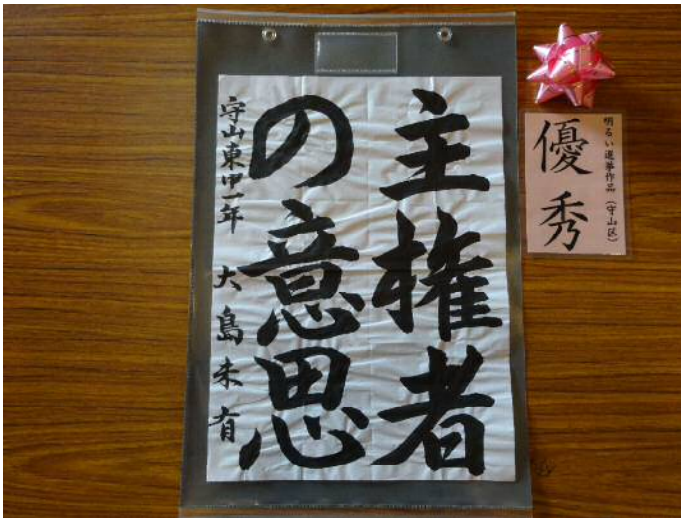 主権者
の意思
守山東中一年 大島未有
明るい選挙作品(守山区)
優秀